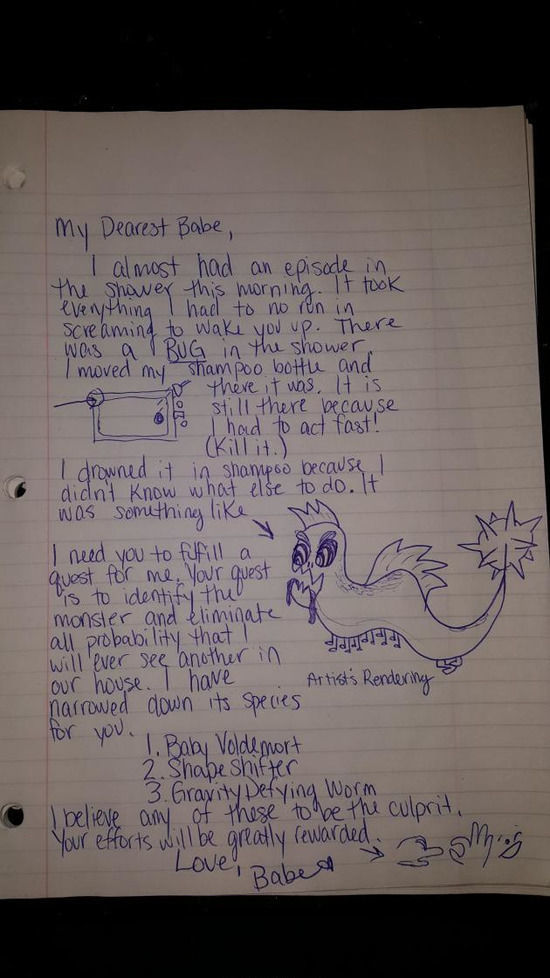 My Dearest Babe,
I almost had an episode in
the shower this morning. It took
everything I had to no run in
screaming to wake you up. There
was a BUG in the shower.
I moved my shampoo bottle and
there it was. It is
still there because
I had to act fast!
(Kill it.)
I drowned it in shampoo because I
didn't know what else to do. It
was something like
I need you to fulfill a
quest for me. Your quest
is to identify the
monster and eliminate
all probability that I
will ever see another in
our house. I have
narrowed down its species
for you.
Artist's Rendering
1. Baby Voldemort
2. Shape Shifter
3. Gravity Defying Worm
I believe any of these to be the culprit.
Your efforts will be greatly rewarded.
Love,
Babe